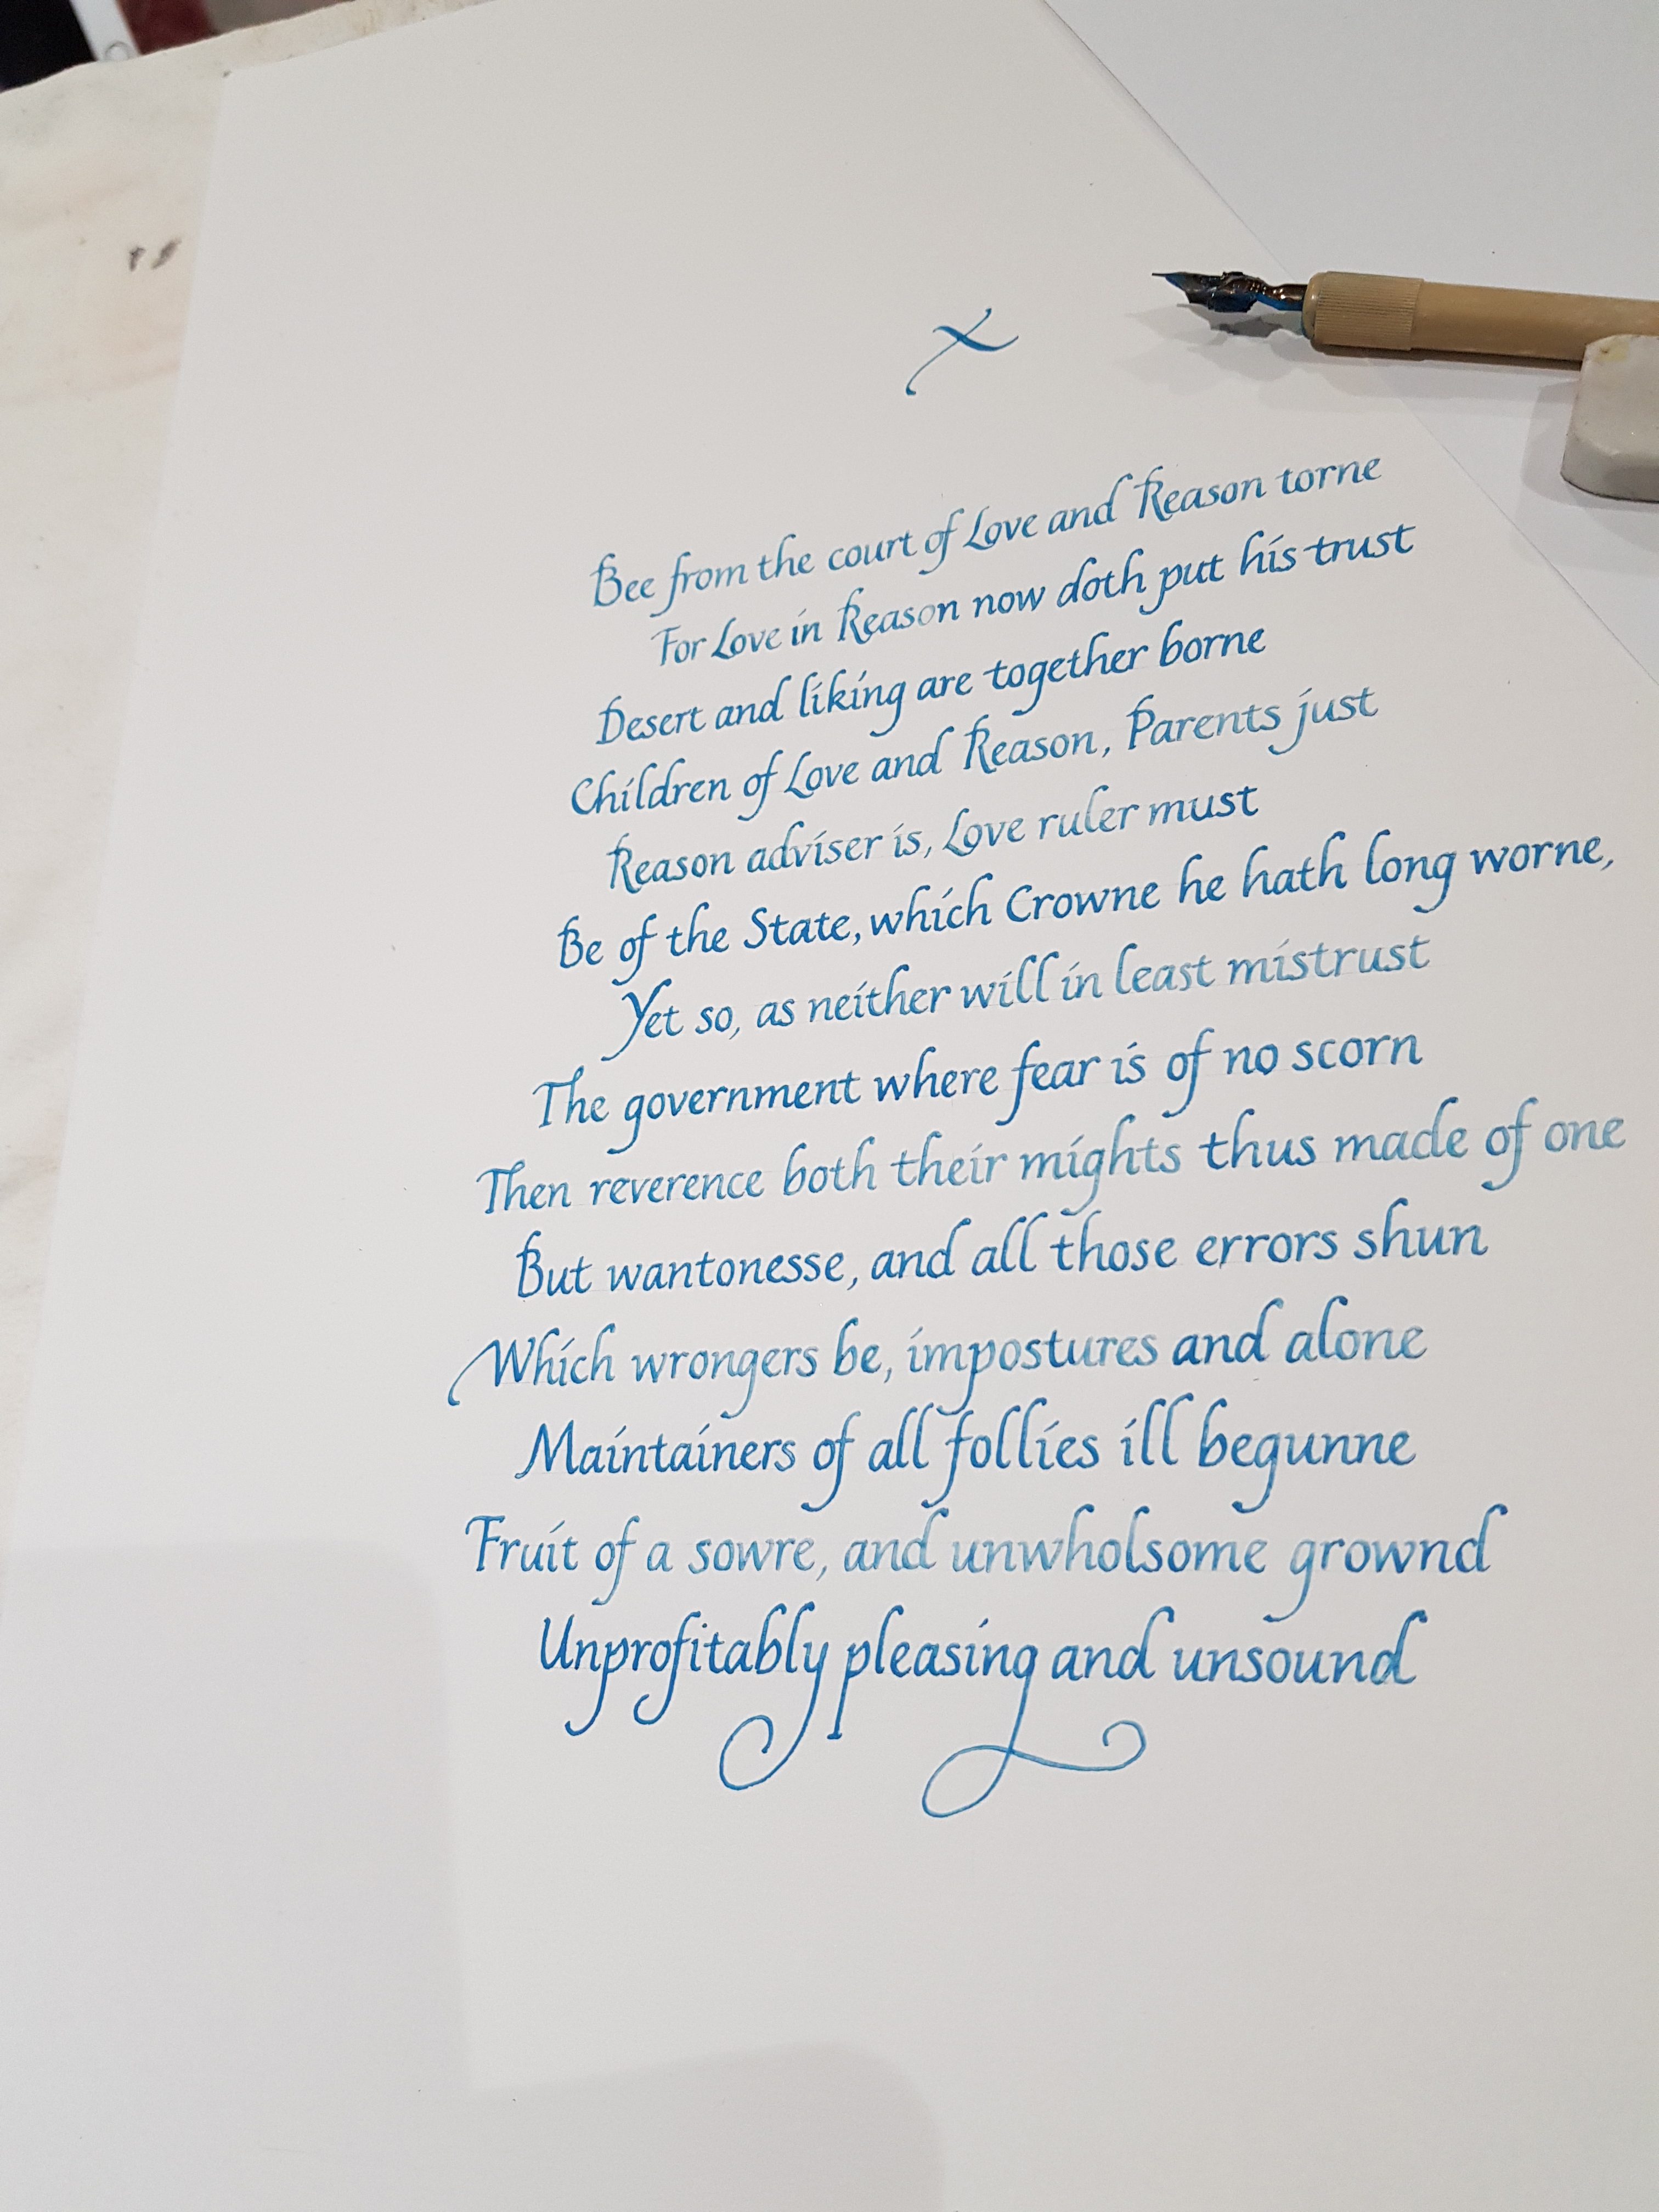 x
Bee from the court of Love and Reason torne
For Love in Reason now doth put his trust
Desert and liking are together borne
Children of Love and Reason, Parents just
Reason adviser is, Love ruler must
Be of the State, which Crowne he hath long worne,
Yet so, as neither will in least mistrust
The government where fear is of no scorn
Then reverence both their mights thus made of one
But wantonesse, and all those errors shun
Which wrongers be, impostures and alone
Maintainers of all follies ill begunne
Fruit of a sowre, and unwholsome grownd
Unprofitably pleasing and unsound